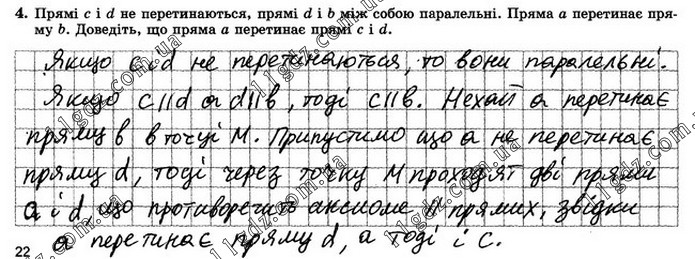 4. Прямі c і d не перетинаються, прямі d і b між собою паралельні. Пряма a перетинає пря-
му b. Доведіть, що пряма a перетинає прямі c і d.
Якщо c і d не перетинаються, то вони паралельні.
Якщо c||d а d||в, тоді c||в. Нехай а перетинає
пряму в в точці М. Припустимо що а не перетинає
пряму d, тоді через точку М проходят дві прями
а і d що противоречить аксиоме || прямих, звідки
а перетинає пряму d, а тоді і с.
22
11gdz.com.ua